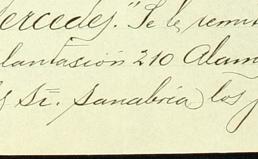 ercedes." Se le remi
lantasión 210 Alam
Sr. Sanabria los